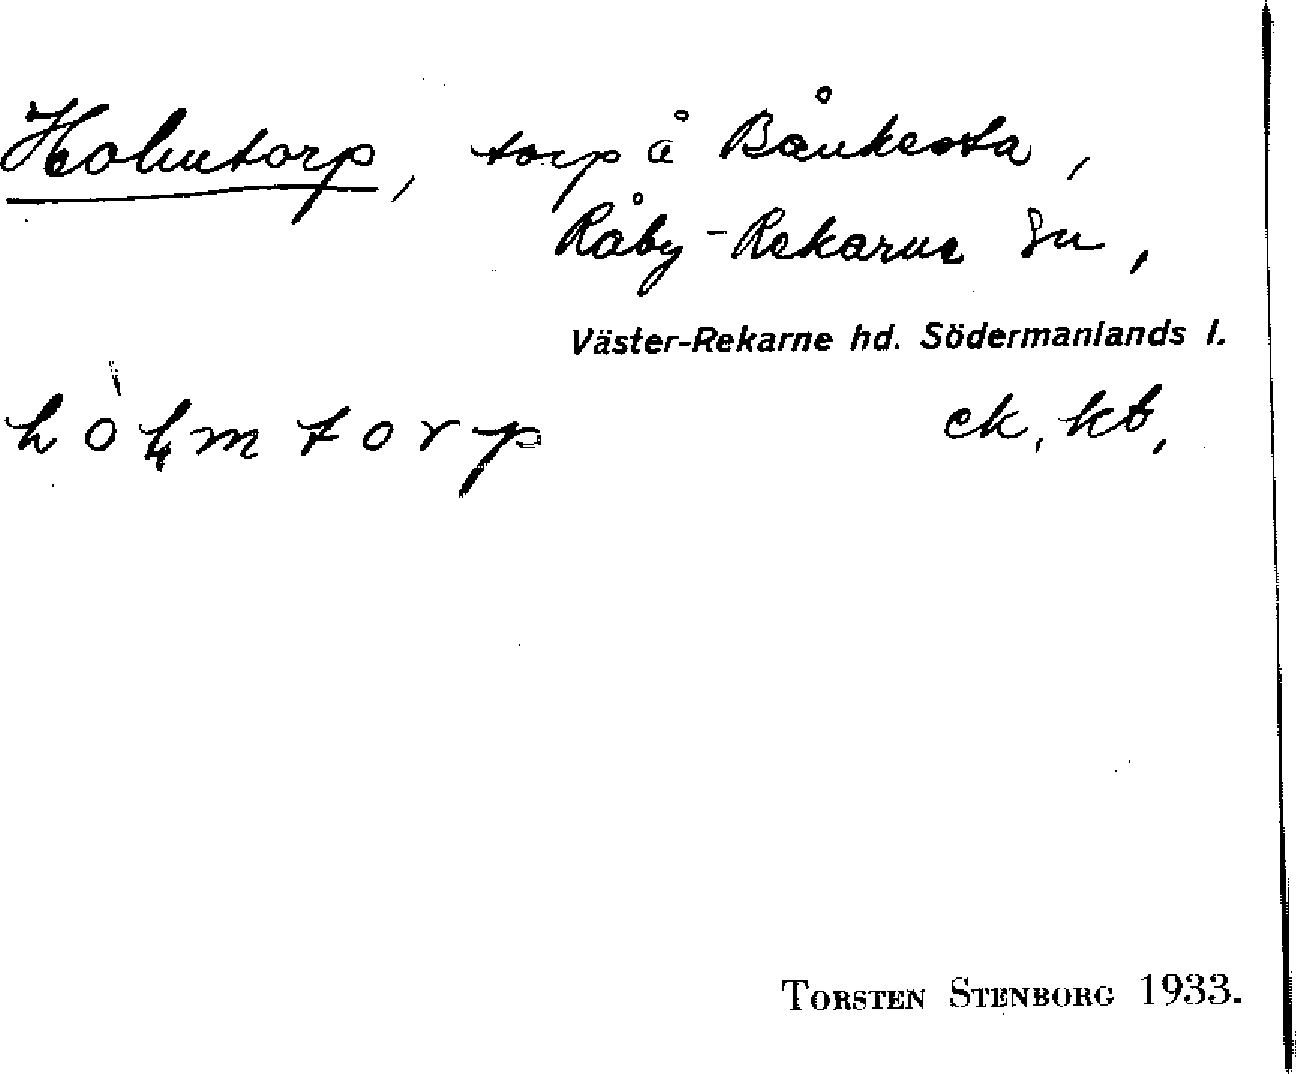 Holmtorp, torp å Bånkesta,
Råby-Rekarne sn,
Väster-Rekarne hd. Södermanlands l.
hòɫmtorp ek, kb,
TORSTEN STENBORG 1933.